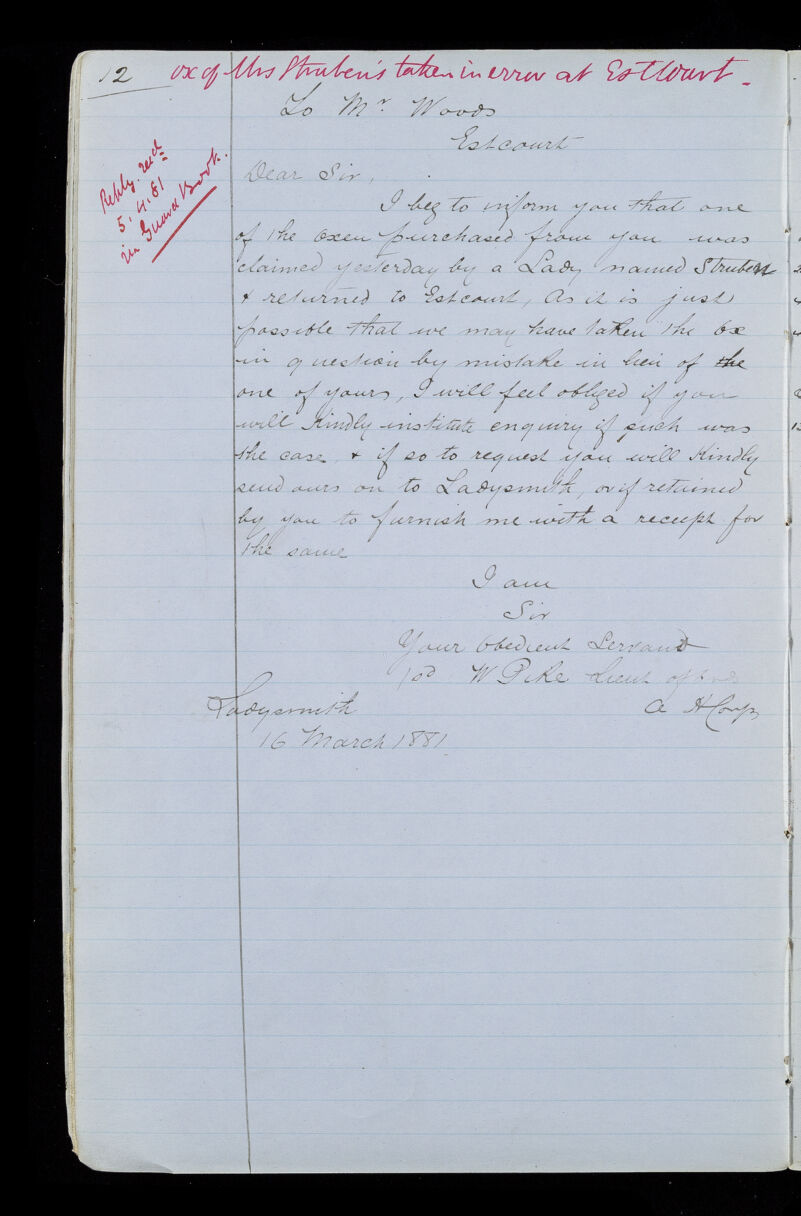 12 ox of Mrs Struben's taken in error at Estcourt -
To Mr. Woods
Estcourt
Reply. recd
5.4.81
in Guard Book.
Dear Sir,
I beg to inform you that one
of the oxen purchased from you was
claimed yesterday by a Lady named Struben
& returned to Estcourt, As it is just
possible that we may have taken the Ox
in question by mistake in lieu of the
one of yours, I will feel obliged if you
will kindly institute enquiry if such was
the case & if so to request you will Kindly
send ours on to Ladysmith, or if retained
by you to furnish me with a receipt for
the same
I am
Sir
Your Obedient Servant
W Pike Lieut
A H Corps
Ladysmith
16 March 1881